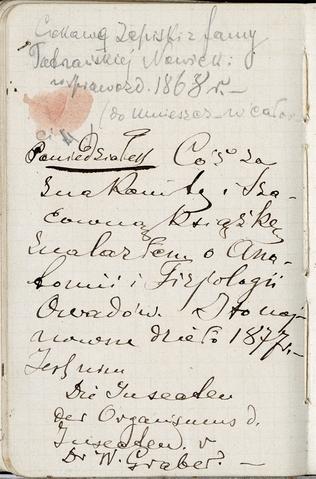 Ciekawe zapiski z fauny
Tatrzańskiej Nowicki
w sprawozd. 1868 r. –
(do umieszcz. w cało
Poniedziałek Cóż za
znakomitą i sza-
cowną książkę
znalazłem o Ana-
tomii i Fizyologii
Owadów. I to naj-
nowsze dzieło 1877 r. –
Jest nim
Die Insecten
der Organismus d.
Insecten. v
Dr W. Graber. –